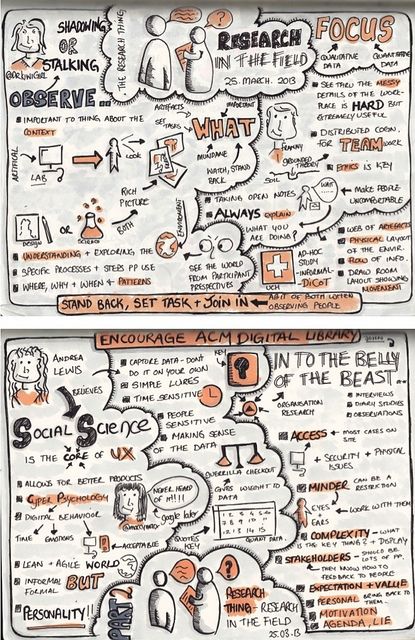 SHADOWING
OR
STALKING
@DRBNIGIRL
THE RESEARCH THING
RESEARCH
IN THE FIELD
25. MARCH. 2013
FOCUS
QUALITATIVE
DATA
QUANTATIVE
DATA
OBSERVE..
IMPORTANT TO THING ABOUT THE
CONTEXT
ARTIFICIAL
LAB
LOOK
ARTIFACTS
SET TASKS
IMPORTANT
WHAT
MUNDANE
WATCH, STAND
BACK
RICH
PICTURE
DESIGN
OR
SCIENCE
BOTH
ENVIRONMENT
UNDERSTANDING + EXPLORING THE
SPECIFIC PROCESSES + STEPS PP USE
WHERE, WHY + WHEN + PATTERNS
GROUNDED
THEORY
TAKING OPEN NOTES
ALWAYS EXPLAIN
WHAT YOU
ARE DOING?
SEE THE WORLD
FROM PARTICIPANT
PERSPECTIVES
UCH
AD-HOC
STUDY
-INFORMAL-
DiCoT
SEE THRU THE MESSY
DETAILS OF THE WORK-
PLACE IS HARD BUT
EXTREMELY USEFUL
DISTRIBUTED COGN.
FOR TEAM WORK
ETHICS IS KEY
MAKE PEOPLE
UNCOMFORTABLE
WEB OF ARTEFACTS
PHYSICAL LAYOUT
OF THE ENVIR.
FLOW OF INFO.
DRAW ROOM
LAYOUT SHOWING
MOVEMENT
STAND BACK, SET TASK + JOIN IN
A BIT OF BOTH WHEN
OBSERVING PEOPLE
ENCOURAGE ACM DIGITAL LIBRARY
ANDREA
LEWIS
BELIEVES
CAPTURE DATA - DON'T
DO IT ON YOUR OWN
SIMPLE LURES
TIME SENSITIVE
KEY
?
PEOPLE
SENSITIVE
MAKING SENSE
OF THE DATA
SOCIAL SCIENCE
IS THE CORE OF UX
ALLOWS FOR BETTER PRODUCTS
CYBER PSYCHOLOGY
DIGITAL BEHAVIOR
TIME
EMOTIONS
ACCEPTABLE
NEVER HEARD
OF IT!!!!
google later
GUERILLA CHECKOUT
GIVES WEIGHT TO
DATA
QUOTES
KEY
QUANT DATA
LEAN + AGILE WORLD
INFORMAL
FORMAL
BUT
PERSONALITY!!
PART 2
RESEARCH
THING - RESEARCH
IN THE FIELD
25.03.13
IN TO THE BELLY
OF THE BEAST..
ORGANISATION
RESEARCH
INTERVIEWS
DIARY STUDIES
OBSERVATIONS
ACCESS
MOST CASES ON
SITE
+ SECURITY + PHYSICAL
ISSUES
MINDER
CAN BE A
RESTRICTION
EYES
+
EARS
WORK WITH THEM
COMPLEXITY - WHAT
IS THE KEY THING? + DISPLAY
STAKEHOLDERS
SHOULD BE
LOTS OF PP.
THEY KNOW HOW TO
FEEDBACK TO PEOPLE
EXPECTATION + VALUE
PERSONAL
BRING BACK TO
THEM
MOTIVATION
AGENDA, LIE